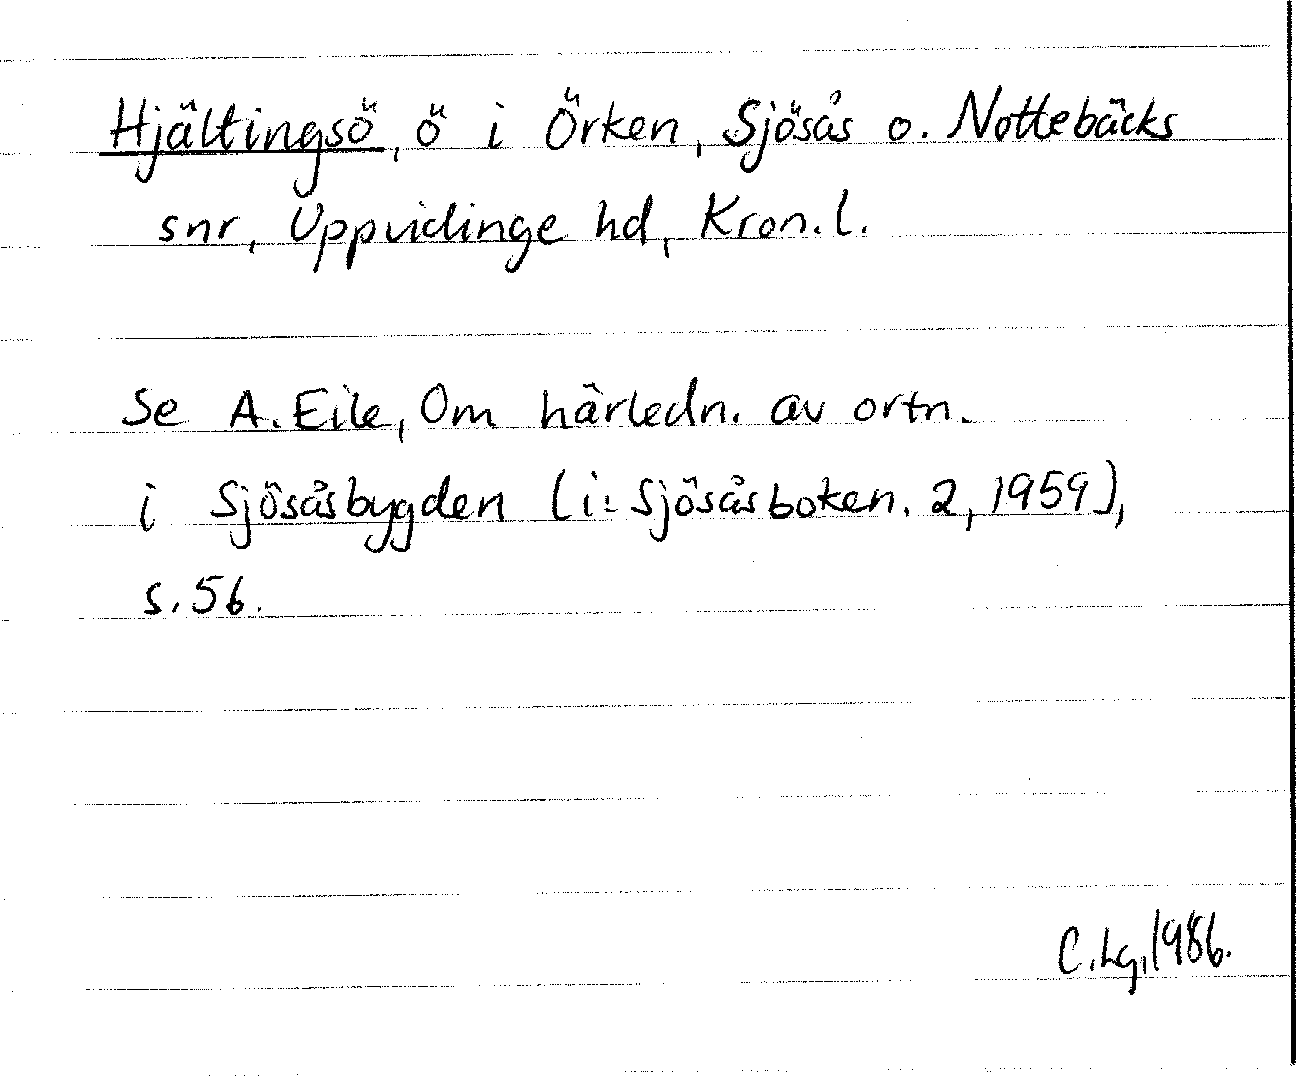 Hjältingsö, ö i Örken, Sjösås o. Nottebäcks
snr, Uppvidinge hd, Kron.l.
Se A. Eile, Om härledn. av ortn.
i Sjösåsbygden (i: Sjösåsboken. 2, 1959),
s. 56.
C. Lg, 1986.